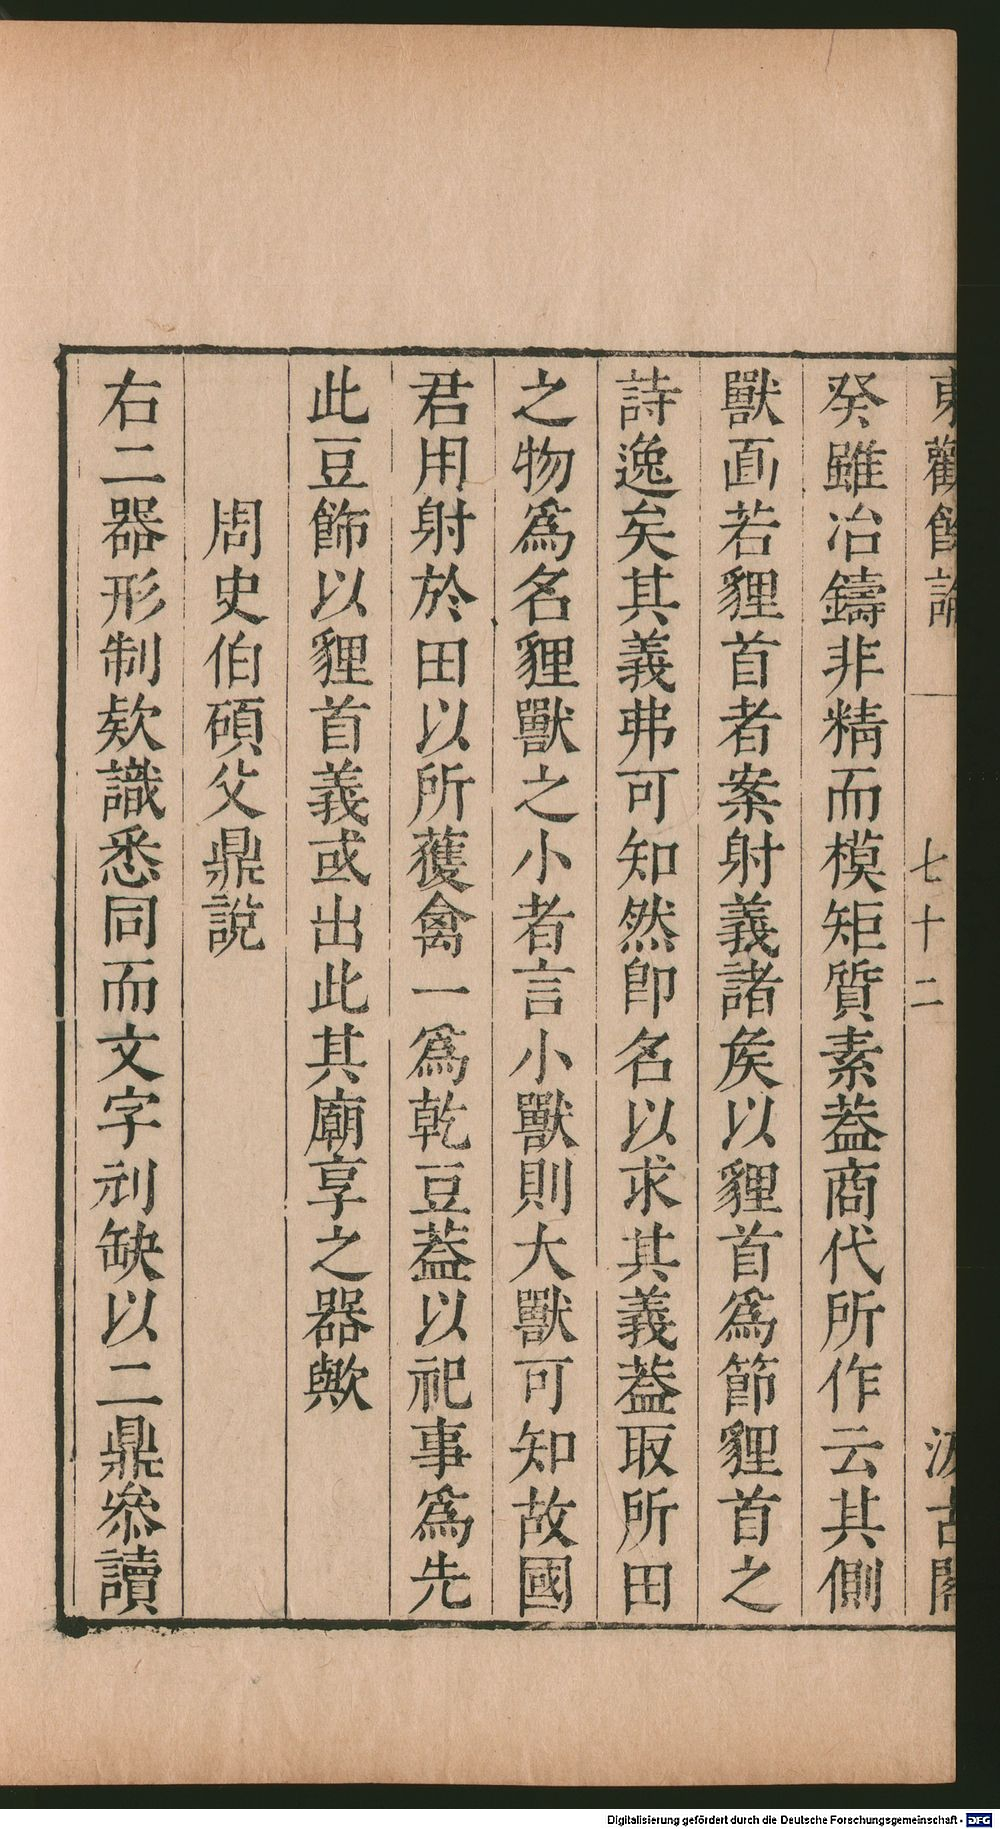 東觀餘論 七十二 汲古閣
癸雖冶鑄非精而模矩質素葢商代所作云其側
獸面若貍首者案射義諸矦以貍首爲節貍首之
詩逸矣其義弗可知然卽名以求其義葢取所田
之物爲名貍獸之小者言小獸則大獸可知故國
君用射於田以所獲禽一爲乾豆葢以祀事爲先
此豆飾以貍首義或出此其廟享之器歟
周史伯碩父鼎說
右二器形制欵識悉同而文字刓缺以二鼎叅讀
Digitalisierung gefördert durch die Deutsche Forschungsgemeinschaft - DFG